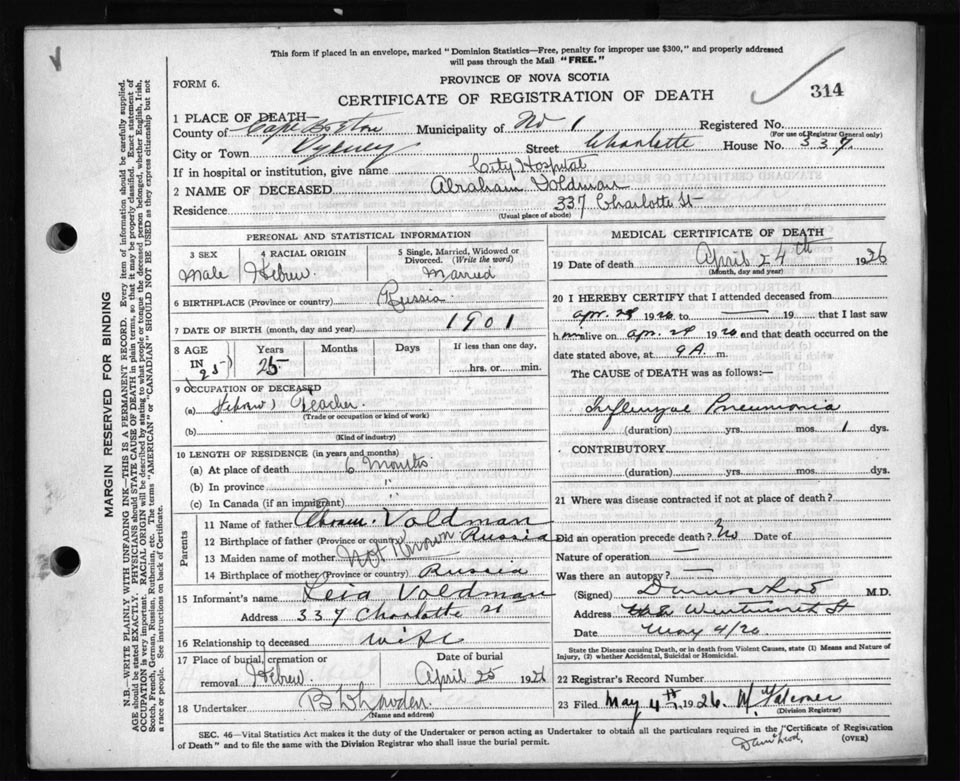 This form if placed in an envelope, marked "Dominion Statistics—Free, penalty for improper use $300," and properly addressed
will pass through the Mail "FREE."
FORM 6.
PROVINCE OF NOVA SCOTIA
314
CERTIFICATE OF REGISTRATION OF DEATH
1 PLACE OF DEATH
County of Cape Breton Municipality of No 1 Registered No.
(For use of Registrar General only)
City or Town Sydney Street Charlotte House No. 337
If in hospital or institution, give name City Hospital
2 NAME OF DECEASED Abraham Voldman
Residence 337 Charlotte St
(Usual place of abode)
PERSONAL AND STATISTICAL INFORMATION
3 SEX Male
4 RACIAL ORIGIN Hebrew.
5 Single, Married, Widowed or Divorced. (Write the word) Married
6 BIRTHPLACE (Province or country) Russia
7 DATE OF BIRTH (month, day and year) 1901
8 AGE IN 25 Years 25 Months Days If less than one day, hrs. or min.
9 OCCUPATION OF DECEASED
(a) (Hebrew) Teacher.
(Trade or occupation or kind of work)
(b)
(Kind of industry)
10 LENGTH OF RESIDENCE (in years and months)
(a) At place of death 6 Months
(b) In province "
(c) In Canada (if an immigrant)
Parents
11 Name of father Voldman
12 Birthplace of father (Province or country) Russia
13 Maiden name of mother Not Known
14 Birthplace of mother (Province or country) Russia
15 Informant's name Leia Voldman
Address 337 Charlotte St
16 Relationship to deceased wife
17 Place of burial, cremation or removal Hebrew. Date of burial April 25 1926
18 Undertaker
(Name and address)
MEDICAL CERTIFICATE OF DEATH
19 Date of death April 24th 1926
(Month, day and year)
20 I HEREBY CERTIFY that I attended deceased from
Apr. 1926 to — 19 that I last saw
him alive on Apr. 1926 and that death occurred on the
date stated above, at 9 A. m.
The CAUSE of DEATH was as follows:—
Pneumonia
(duration) yrs. mos. 1 dys.
CONTRIBUTORY.
(duration) yrs. mos. dys.
21 Where was disease contracted if not at place of death?
Did an operation precede death? No Date of
Nature of operation —
Was there an autopsy? —
(Signed) M.D.
Address Wentworth St
Date May 4/26
State the Disease causing Death, or in death from Violent Causes, state (1) Means and Nature of
Injury, (2) whether Accidental, Suicidal or Homicidal.
22 Registrar's Record Number
23 Filed May 4th, 1926
(Division Registrar)
SEC. 46—Vital Statistics Act makes it the duty of the Undertaker or person acting as Undertaker to obtain all the particulars required in the "Certificate of Registration
of Death" and to file the same with the Division Registrar who shall issue the burial permit.
(OVER)
MARGIN RESERVED FOR BINDING
N.B.—WRITE PLAINLY WITH UNFADING INK—THIS IS A PERMANENT RECORD. Every item of information should be carefully supplied.
AGE should be stated EXACTLY. PHYSICIANS should STATE CAUSE OF DEATH in plain terms, so that it may be properly classified. Exact statement of
OCCUPATION is very important. RACIAL ORIGIN will be described by stating to what people or tongue the deceased person belonged, whether English, Irish,
Scotch, French, German, Russian, Ruthenian, etc. The terms "AMERICAN" or "CANADIAN" SHOULD NOT BE USED as they express citizenship but not
a race or people. See instructions on back of Certificate.